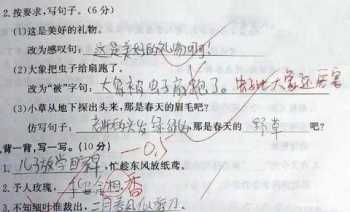 2.按要求,写句子。(6分)
(1)这是美好的礼物。
改为感叹句:这是美好的礼物啊!
(2)大象把虫子给扇跑了。
改为“被”字句:大象被虫子扇跑了。 虫子比大象还厉害
(3)小草从地下探出头来,那是春天的眉毛吧?
仿写句子: 那是春天的 吧?
背一背,写一写。(10分) -0.5
1.儿子放学归来早,忙趁东风放纸鸢。
2.予人玫瑰, 香
3.不知细叶谁裁出,二月春风似剪刀。